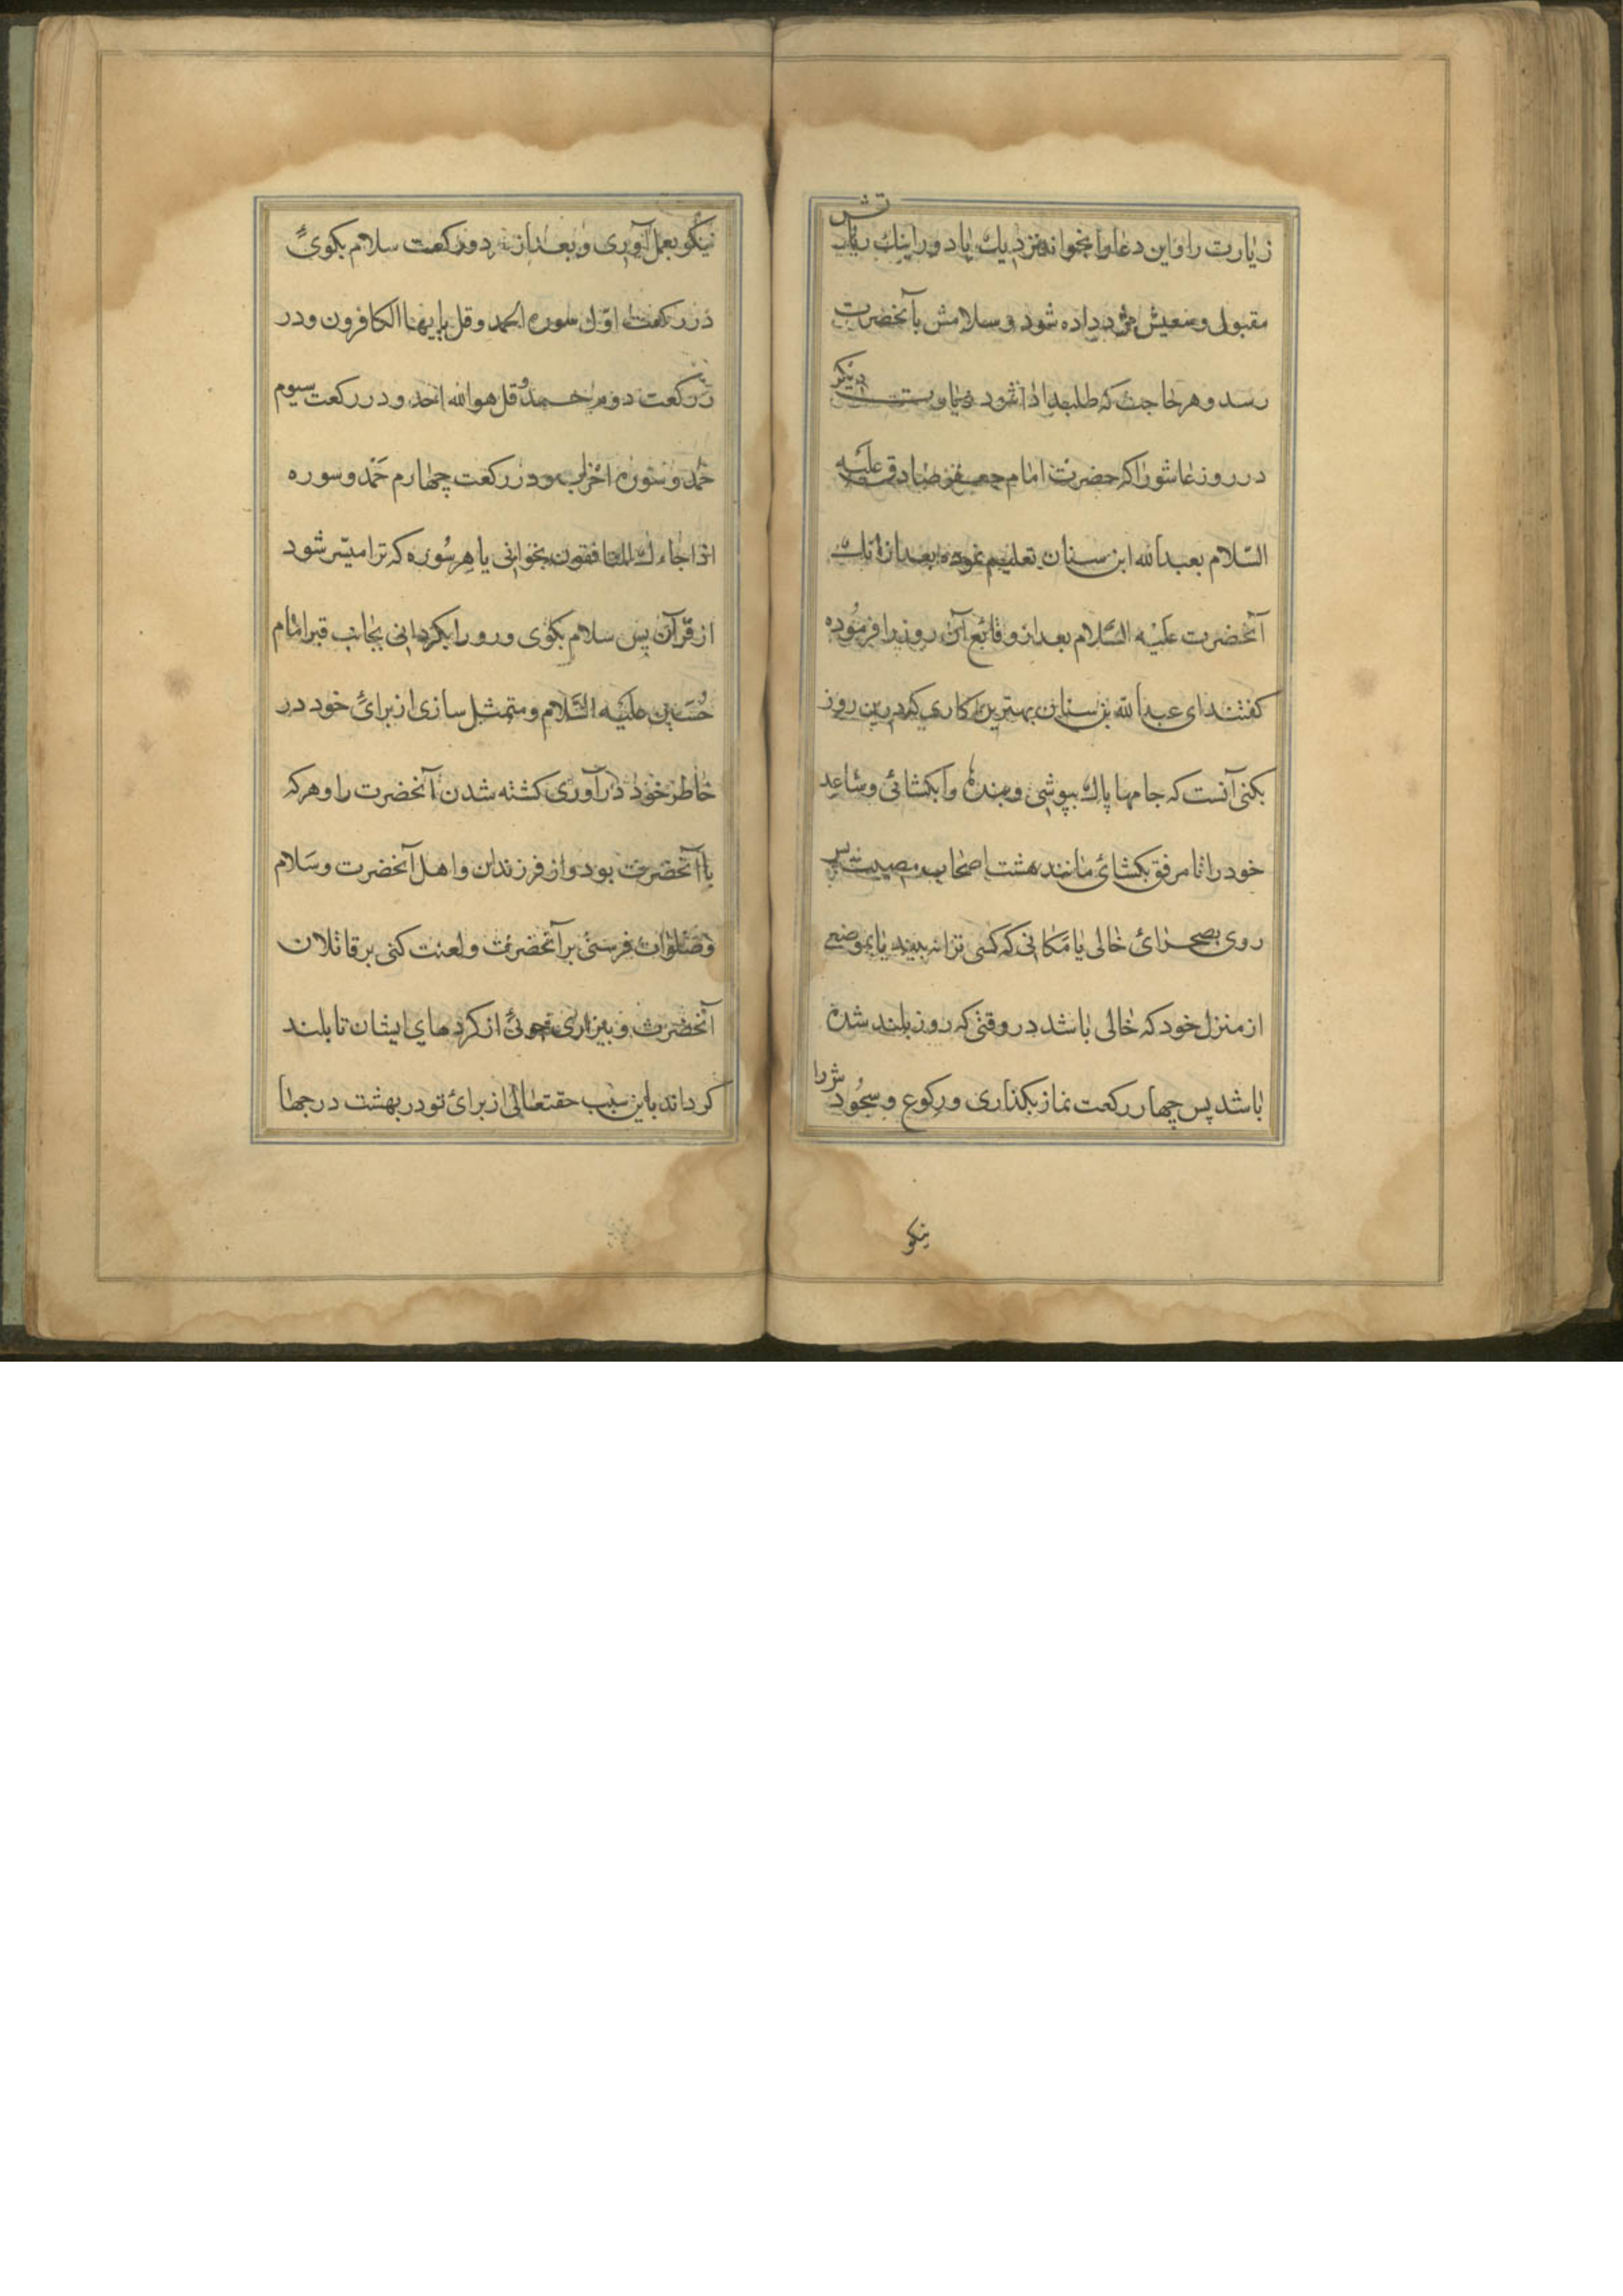 زیارت را و این دعا را بخواند نزدیک یا دور اینک زیارتش
مقبول و سعیش مزد داده شود و سلامش بآنحضرت
رسد و هر حاجت که طلبد ادا شود زیارت دیگر
در روز عاشورا که حضرت امام جعفر صادق علیه
السّلام بعبدالله ابن سنان تعلیم نموده بعد از آنک
آنحضرت علیه السَّلام بعد از وقائع آن روز را فرمُوده
کفتند ای عبدالله بن سنان بهترین کاری که درین روز
بکنی آنست که جامها پاک بپوشی و بندها وا بکشائی و ساعد
خود را تا مرفق بکشائ مانند هشت اصحاب مصیبت پس
روی بصحرائ خالی یا مکانی که کسی ترا نه بیند یا بموضعی
از منزل خود که خالی باشد در وقتی که روز بلند شده
باشد پس چهار رکعت نماز بکذاری و رکوع و سجُودش را
نیکو
نیکو بعمل آوری و بعد از نه دو رکعت سلام بکوئ
در رکعت اوّل سوره الحمد و قل یا یها الکافرون و در
رکعت دوم حمد و قل هو الله احد و در رکعت سیوم
حمد و سوره احزاب و در رکعت چهارم حَمْد و سوره
اذا جاءک المنافقون بخوانی یا هر سُوره که ترا میسّر شود
از قرآن پس سلام بکوی و رو را بکردانی بجانب قبر امام
حُسَین علیه السَّلام و متمثل سازی از برائ خود در
خاطر خود در آوری کشته شدن آنحضرت را و هر که
با آنحضرت بود و از فرزندان و اهل آنحضرت و سَلام
و صلوات فرستی بر آنحضرت و لعنت کنی بر قاتلان
آنحضرت و بیزاری جوئی از کردهای ایشان تا بلند
کرداند باین سبب حقتعالی از برائ تو در بهشت درجها